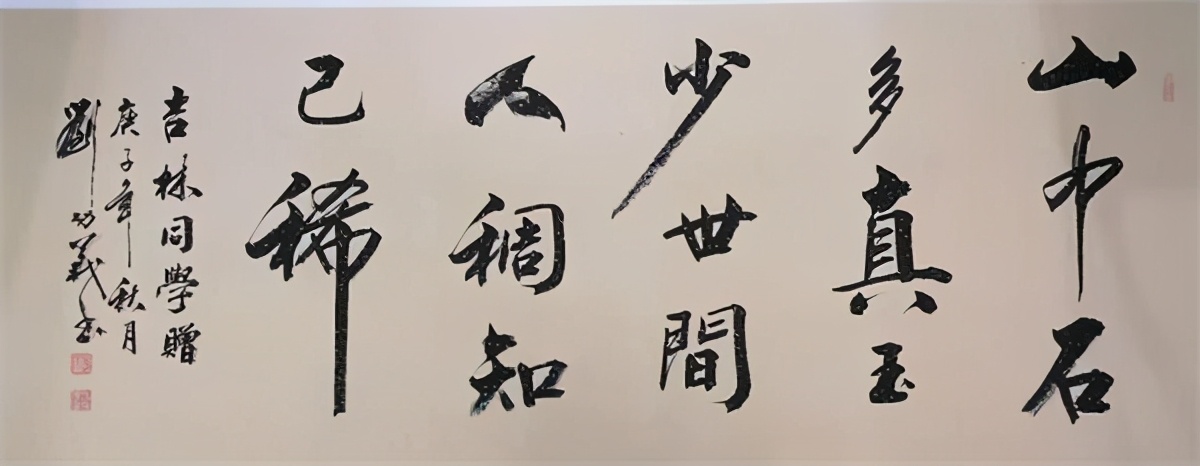 山中石
多真玉
少世間
人稠知
己稀
吉林同學贈
庚子年秋月
劉功義書